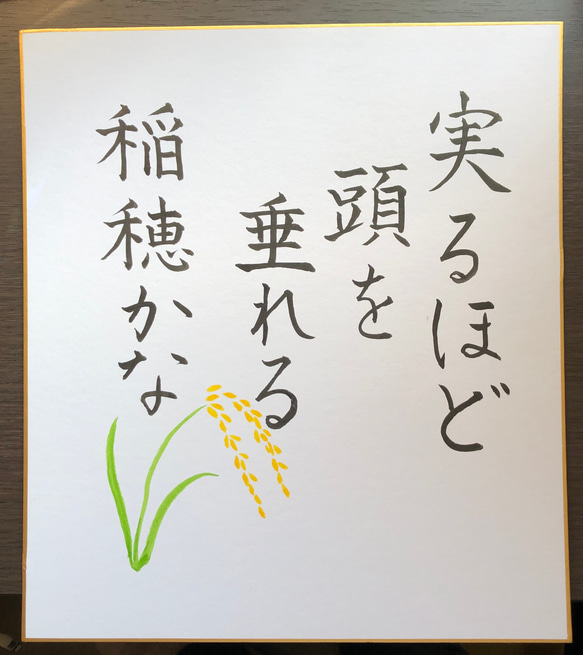 実るほど
頭を
垂れる
稲穂かな